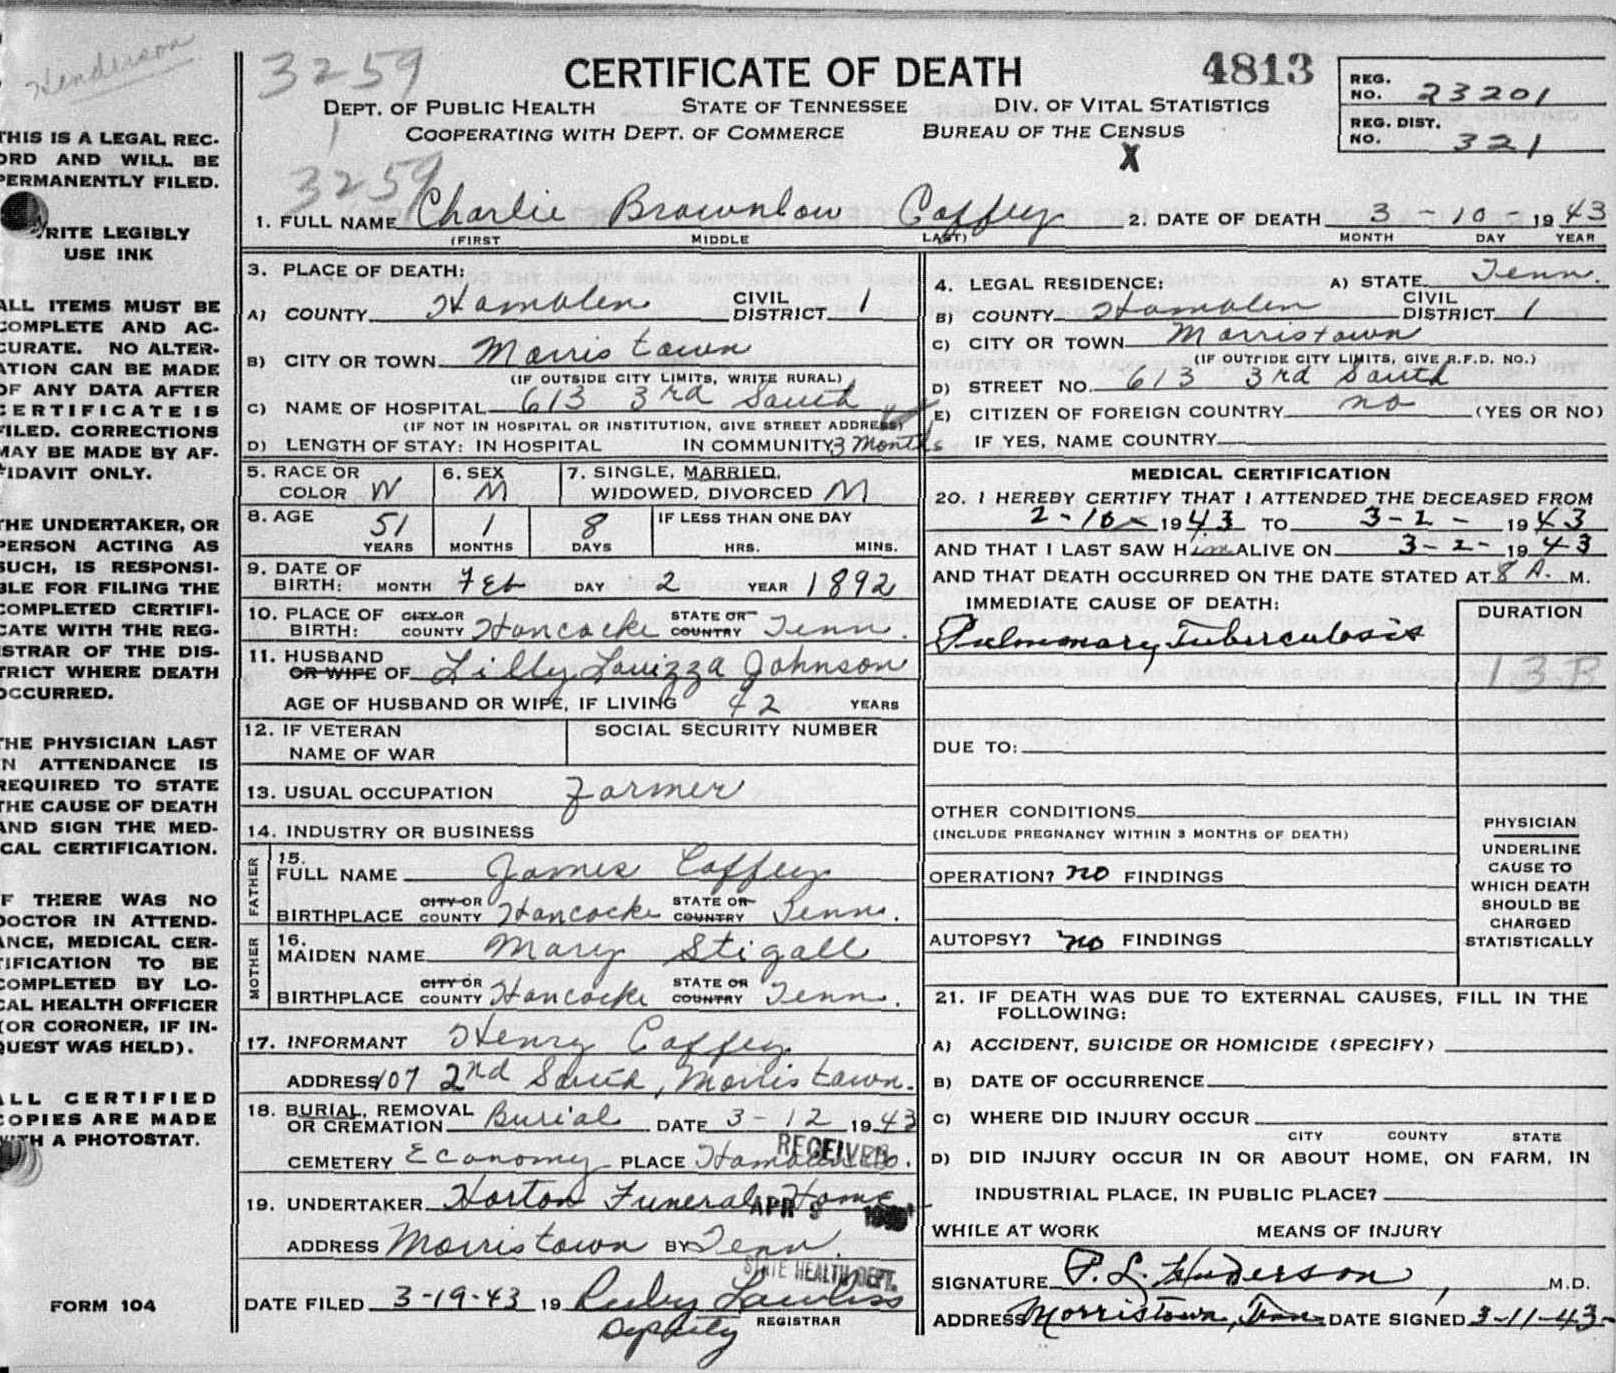 Henderson
THIS IS A LEGAL REC-
ORD AND WILL BE
PERMANENTLY FILED.
WRITE LEGIBLY
USE INK
ALL ITEMS MUST BE
COMPLETE AND AC-
CURATE. NO ALTER-
ATION CAN BE MADE
OF ANY DATA AFTER
CERTIFICATE IS
FILED. CORRECTIONS
MAY BE MADE BY AF-
FIDAVIT ONLY.
THE UNDERTAKER, OR
PERSON ACTING AS
SUCH, IS RESPONSI-
BLE FOR FILING THE
COMPLETED CERTIFI-
CATE WITH THE REG-
ISTRAR OF THE DIS-
TRICT WHERE DEATH
OCCURRED.
THE PHYSICIAN LAST
IN ATTENDANCE IS
REQUIRED TO STATE
THE CAUSE OF DEATH
AND SIGN THE MED-
ICAL CERTIFICATION.
IF THERE WAS NO
DOCTOR IN ATTEND-
ANCE, MEDICAL CER-
TIFICATION TO BE
COMPLETED BY LO-
CAL HEALTH OFFICER
(OR CORONER, IF IN-
QUEST WAS HELD).
ALL CERTIFIED
COPIES ARE MADE
WITH A PHOTOSTAT.
FORM 104
3259
CERTIFICATE OF DEATH 4813
REG. NO. 23201
REG. DIST. NO. 321
DEPT. OF PUBLIC HEALTH STATE OF TENNESSEE DIV. OF VITAL STATISTICS
COOPERATING WITH DEPT. OF COMMERCE BUREAU OF THE CENSUS
X
3259
1. FULL NAME Charlie Brownlow Coffey 2. DATE OF DEATH 3 - 10 - 19 43
(FIRST MIDDLE LAST) MONTH DAY YEAR
3. PLACE OF DEATH:
A) COUNTY Hamblen CIVIL DISTRICT 1
B) CITY OR TOWN Morristown
(IF OUTSIDE CITY LIMITS, WRITE RURAL)
C) NAME OF HOSPITAL 613 3rd South
(IF NOT IN HOSPITAL OR INSTITUTION, GIVE STREET ADDRESS)
D) LENGTH OF STAY: IN HOSPITAL IN COMMUNITY 3 Months
4. LEGAL RESIDENCE: A) STATE Tenn.
B) COUNTY Hamblen CIVIL DISTRICT 1
C) CITY OR TOWN Morristown
(IF OUTSIDE CITY LIMITS, GIVE R.F.D. NO.)
D) STREET NO. 613 3rd South
E) CITIZEN OF FOREIGN COUNTRY no (YES OR NO)
IF YES, NAME COUNTRY
5. RACE OR COLOR W 6. SEX M 7. SINGLE, MARRIED, WIDOWED, DIVORCED M
8. AGE 51 YEARS 1 MONTHS 8 DAYS IF LESS THAN ONE DAY HRS. MINS.
9. DATE OF BIRTH: MONTH Feb DAY 2 YEAR 1892
10. PLACE OF BIRTH: CITY OR COUNTY Hancocke STATE OR COUNTRY Tenn.
11. HUSBAND OR WIFE OF Lilly Louizza Johnson
AGE OF HUSBAND OR WIFE, IF LIVING 42 YEARS
12. IF VETERAN NAME OF WAR SOCIAL SECURITY NUMBER
13. USUAL OCCUPATION Farmer
14. INDUSTRY OR BUSINESS
FATHER
15. FULL NAME James Coffey
BIRTHPLACE CITY OR COUNTY Hancocke STATE OR COUNTRY Tenn.
MOTHER
16. MAIDEN NAME Mary Stigall
BIRTHPLACE CITY OR COUNTY Hancocke STATE OR COUNTRY Tenn.
17. INFORMANT Henry Coffey
ADDRESS 107 2nd South, Morristown.
18. BURIAL, REMOVAL OR CREMATION Burial DATE 3 - 12 19 43
CEMETERY Economy PLACE Hamblen Co.
RECEIVED
19. UNDERTAKER Horton Funeral Home
APR 9
ADDRESS Morristown BY Tenn.
STATE HEALTH DEPT.
DATE FILED 3-19-43 19 Ruby Lawless
Deputy REGISTRAR
MEDICAL CERTIFICATION
20. I HEREBY CERTIFY THAT I ATTENDED THE DECEASED FROM
2-10- 19 43 TO 3-2- 19 43
AND THAT I LAST SAW Him ALIVE ON 3-2- 19 43
AND THAT DEATH OCCURRED ON THE DATE STATED AT 8 A. M.
IMMEDIATE CAUSE OF DEATH: DURATION
Pulmonary Tuberculosis
13B
DUE TO:
OTHER CONDITIONS
(INCLUDE PREGNANCY WITHIN 3 MONTHS OF DEATH)
OPERATION? no FINDINGS
AUTOPSY? no FINDINGS
PHYSICIAN
UNDERLINE
CAUSE TO
WHICH DEATH
SHOULD BE
CHARGED
STATISTICALLY
21. IF DEATH WAS DUE TO EXTERNAL CAUSES, FILL IN THE
FOLLOWING:
A) ACCIDENT, SUICIDE OR HOMICIDE (SPECIFY)
B) DATE OF OCCURRENCE
C) WHERE DID INJURY OCCUR
CITY COUNTY STATE
D) DID INJURY OCCUR IN OR ABOUT HOME, ON FARM, IN
INDUSTRIAL PLACE, IN PUBLIC PLACE?
WHILE AT WORK MEANS OF INJURY
SIGNATURE P. L. Henderson, M.D.
ADDRESS Morristown, Tenn DATE SIGNED 3-11-43-